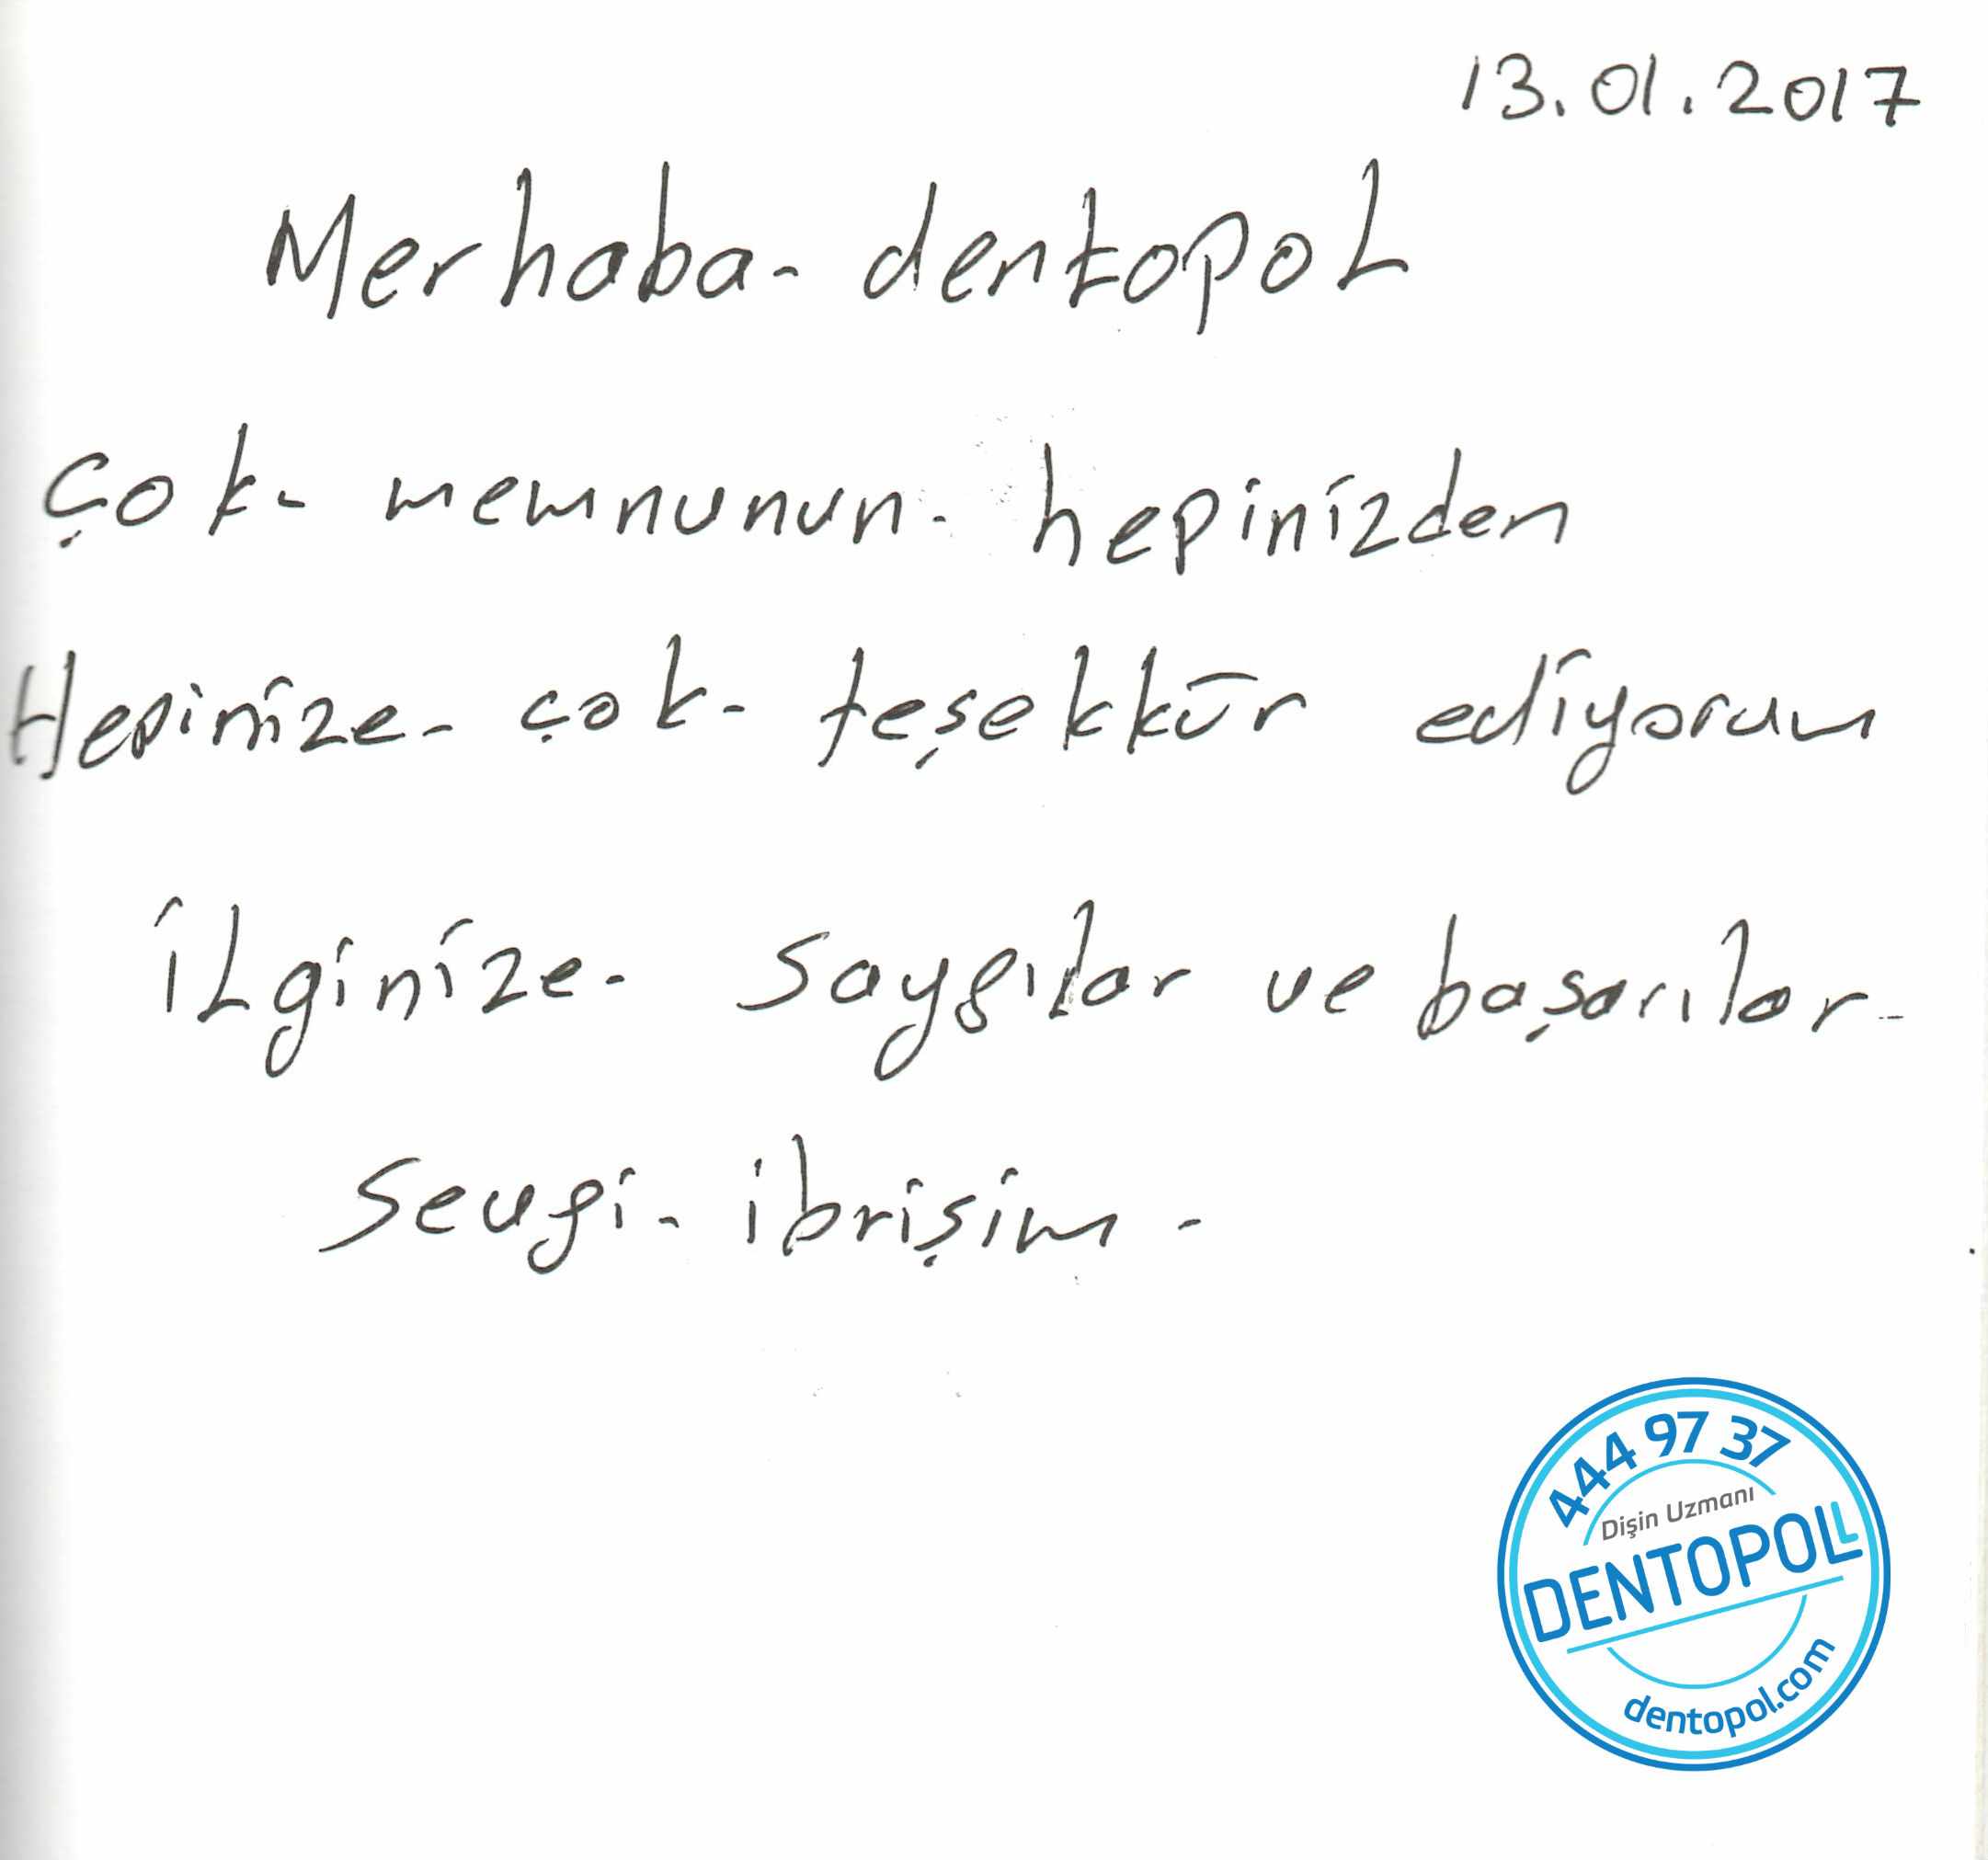 13.01.2017
Merhaba- dentopol
Çok- memnunun- hepinizden
Hepinize- çok- teşekkür ediyorum
ilginize- saygılar ve başarılar-
Sevgi- ibrişim-
444 97 37
Dişin Uzmanı
DENTOPOL
dentopol.com